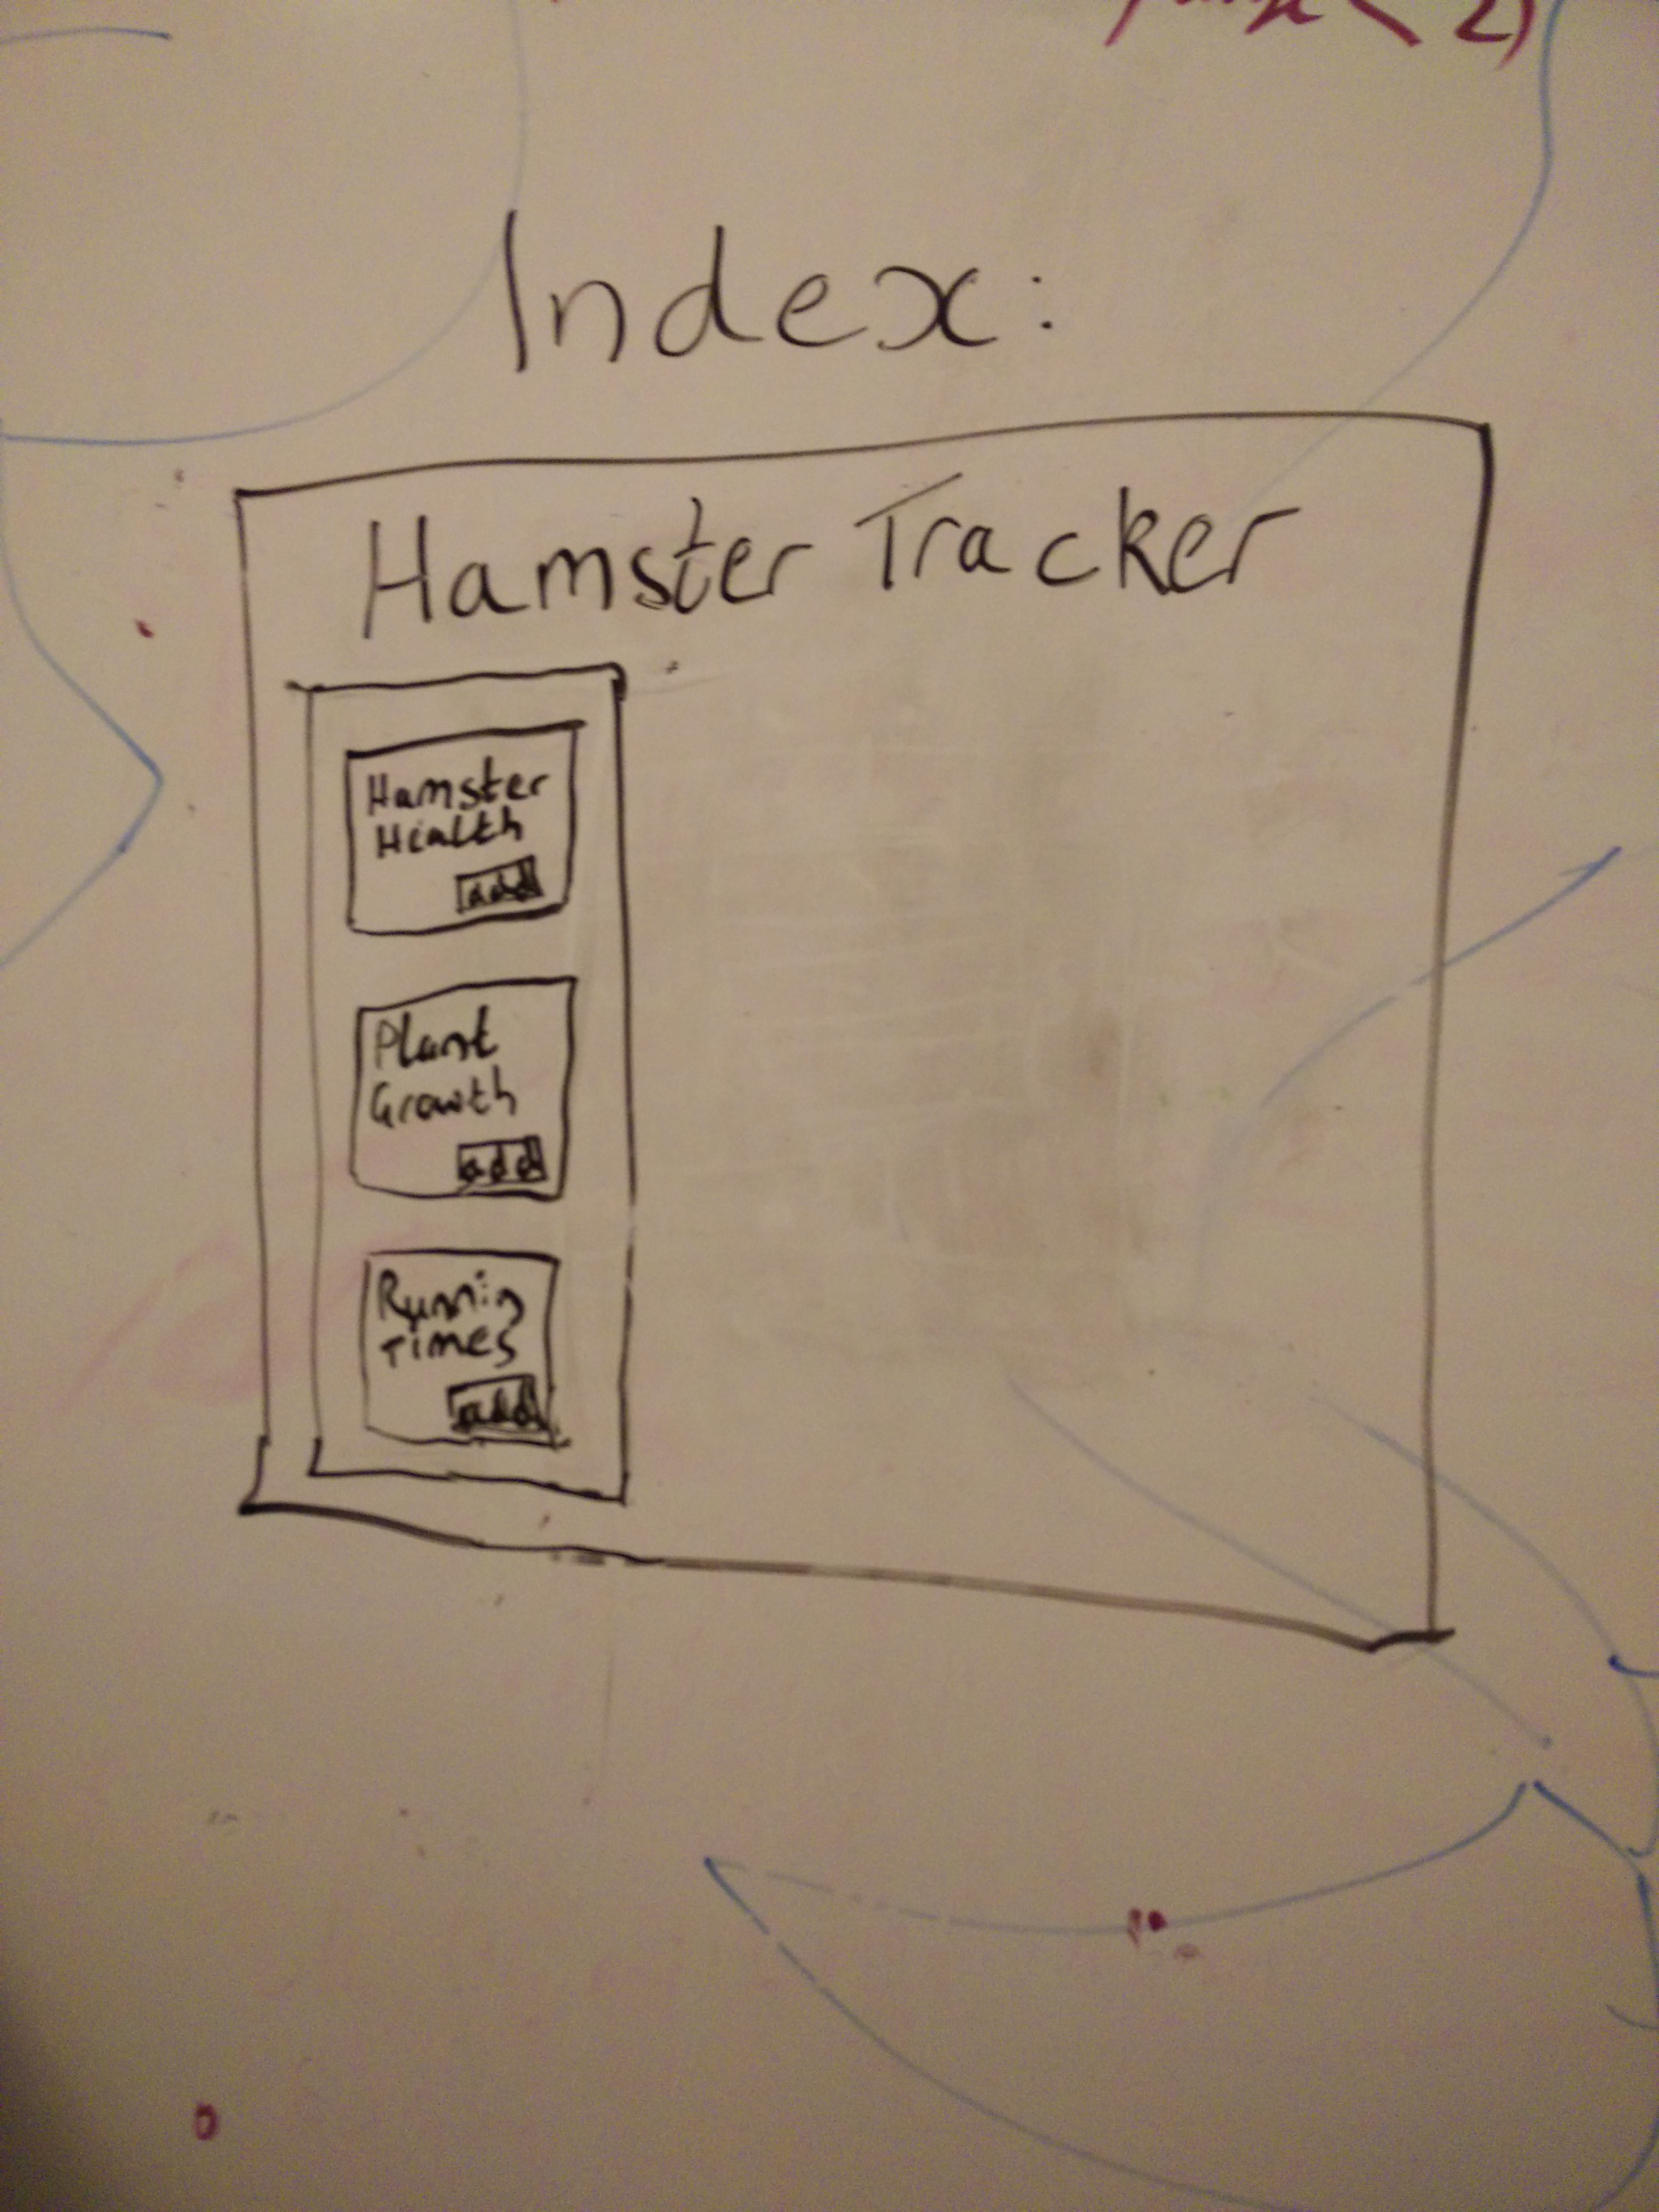 2)
Index:
Hamster Tracker
Hamster
Health
add
Plant
Growth
add
Running
Times
add